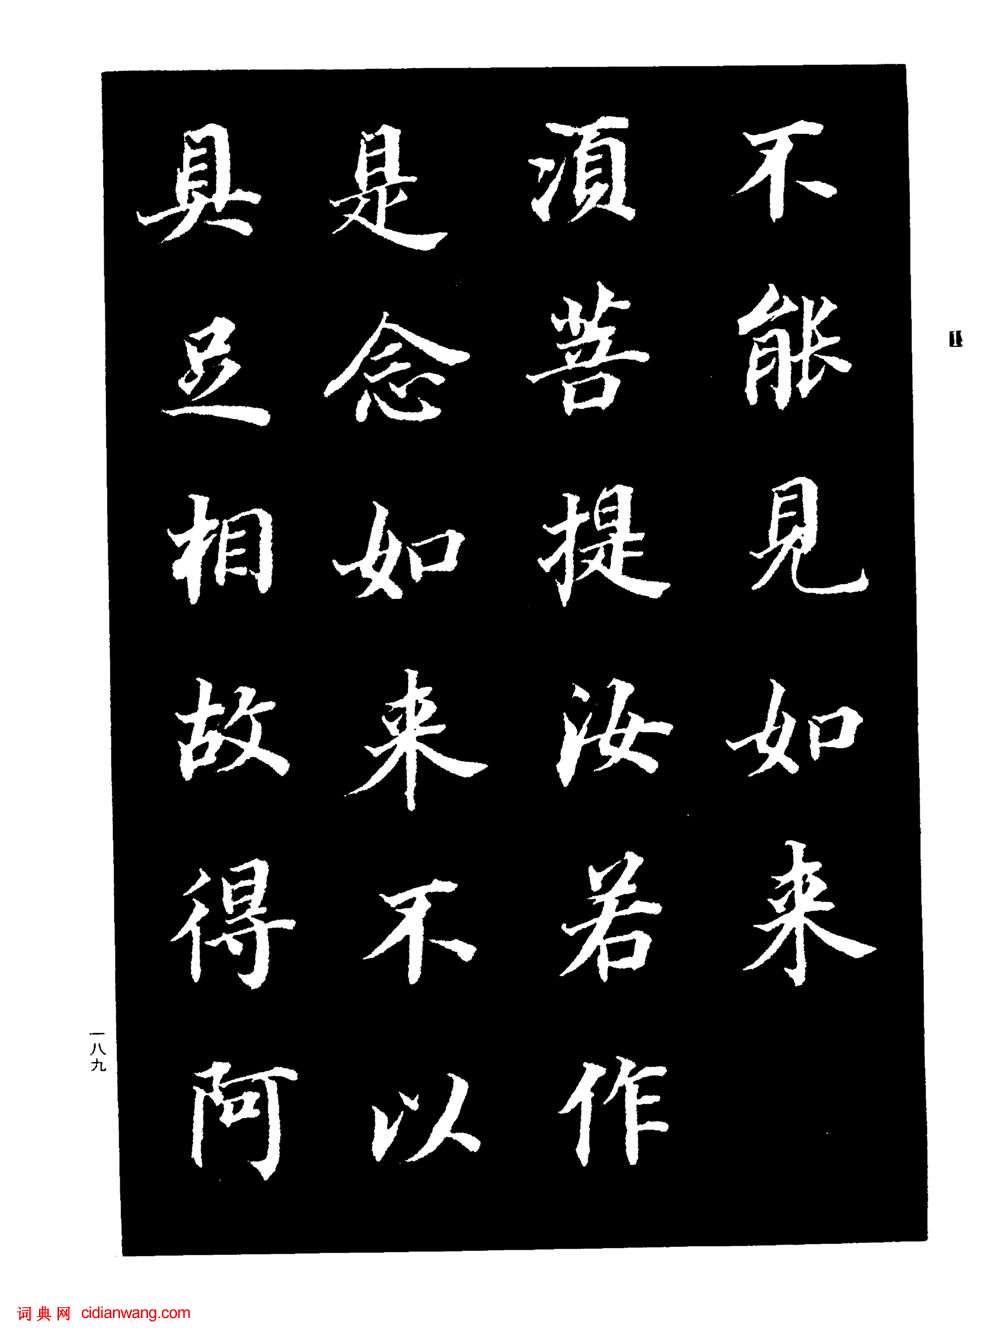 不能見如来
須菩提汝若作
是念如来不以
具足相故得阿
一八九
词典网 cidianwang.com